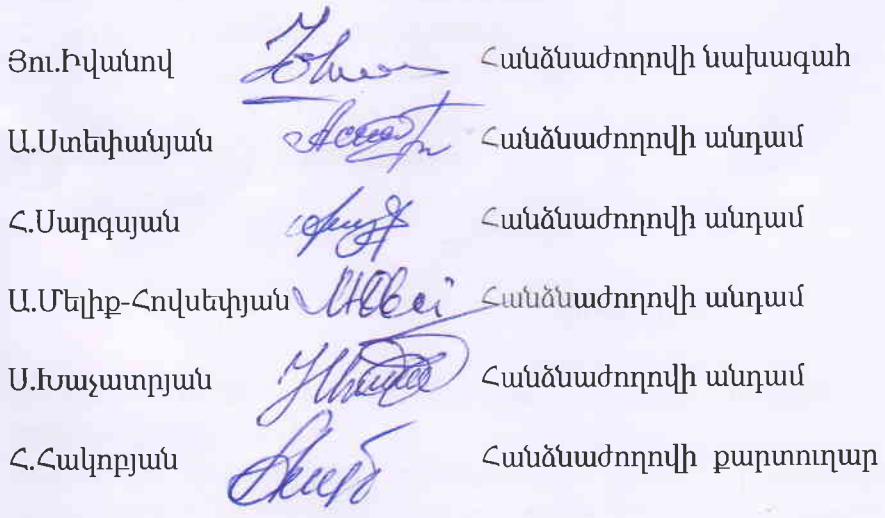 Յու.Իվանով Հանձնաժողովի նախագահ
Ա.Ստեփանյան Հանձնաժողովի անդամ
Հ.Սարգսյան Հանձնաժողովի անդամ
Ա.Մելիք-Հովսեփյան Հանձնաժողովի անդամ
Ս.Խաչատրյան Հանձնաժողովի անդամ
Հ.Հակոբյան Հանձնաժողովի քարտուղար